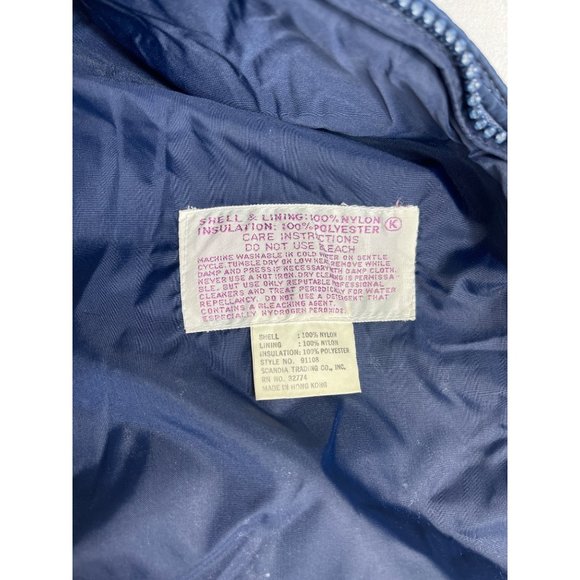 SHELL & LINING: 100% NYLON
INSULATION: 100% POLYESTER K
CARE INSTRUCTIONS
DO NOT USE BLEACH
MACHINE WASHABLE IN COLD WATER ON GENTLE
CYCLE. TUMBLE DRY ON LOW HEAT. REMOVE WHILE
DAMP AND PRESS IF NECESSARY WITH DAMP CLOTH.
NEVER USE A HOT IRON. DRY CLEANING IS PERMISSA-
BLE. BUT USE ONLY REPUTABLE PROFESSIONAL
CLEANERS AND TREAT PERIODICALLY FOR WATER
REPELLANCY. DO NOT USE A DETERGENT THAT
CONTAINS A BLEACHING AGENT.
ESPECIALLY HYDROGEN PEROXIDE.
SHELL : 100% NYLON
LINING : 100% NYLON
INSULATION: 100% POLYESTER
STYLE NO. 91108
SCANDIA TRADING CO., INC.
RN NO. 32774
MADE IN HONG KONG